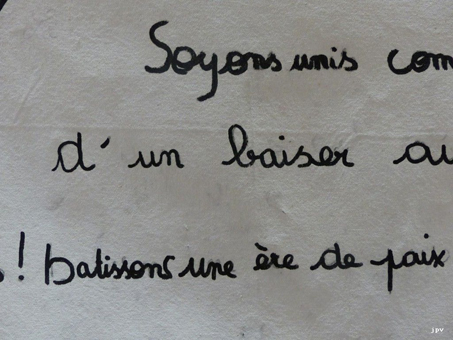 Soyons unis com
d' un baiser au
! batissons une ère de paix
jpv